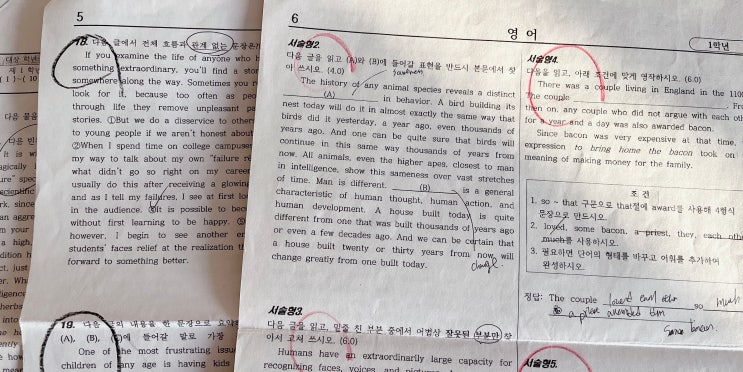 5
18. 다음 글에서 전체 흐름과 관계 없는 문장은?
If you examine the life of anyone who h
something extraordinary, you'll find a stor
somewhere along the way. Sometimes you
look for it, because too often as peo
through life they remove unpleasant pe
stories. ①But we do a disservice to others
to young people if we aren't honest about
②When I spend time on college campuses
my way to talk about my own "failure re
what didn't go so right on my career
usually do this after receiving a glowing
and as I tell my failures, I see at first loo
in the audience. It is possible to be
without first learning to be happy.
however, I begin to see another e
students' faces relief at the realization th
forward to something better.
19. 다음 글의 내용을 한 문장으로 요약
(A), (B), (C)에 들어갈 말로 가장
One of the most frustrating issu
children of any age is having kids
6
영 어
1학년
서술형2.
다음 글을 읽고 (A)와 (B)에 들어갈 표현을 반드시 본문에서 찾
아 쓰시오. (4.0)
sameness
The history of any animal species reveals a distinct
(A) in behavior. A bird building its
nest today will do it in almost exactly the same way that
birds did it yesterday, a year ago, even thousands of
years ago. And one can be quite sure that birds will
continue in this same way thousands of years from
now. All animals, even the higher apes, closest to man
in intelligence, show this sameness over vast stretches
of time. Man is different. (B) is a general
characteristic of human thought, human action, and
human development. A house built today is quite
different from one that was built thousands of years ago
or even a few decades ago. And we can be certain that
a house built twenty or thirty years from now will
change greatly from one built today.
change
서술형3.
다음 글을 읽고, 밑줄 친 부분 중에서 어법상 잘못된 부분만 찾
아서 고쳐 쓰시오. (6.0)
Humans have an extraordinarily large capacity for
recognizing faces, voices, and pictures
서술형4.
다음을 읽고, 아래 조건에 맞게 영작하시오. (6.0)
There was a couple living in England in the 1100
The couple . Fr
then on, any couple who did not argue with each oth
for a year and a day was also awarded bacon.
Since bacon was very expensive at that time,
expression to bring home the bacon took on
meaning of making money for the family.
조 건
1. so ~ that 구문으로 that절에 award를 사용해 4형식
문장으로 만드시오.
2. loved, some bacon, a priest, they, each othe
much를 사용하시오.
3. 필요하면 단어의 형태를 바꾸고 어휘를 추가하여
완성하시오.
정답: The couple loved each other so much
a priest awarded them
some bacon.
서술형5.